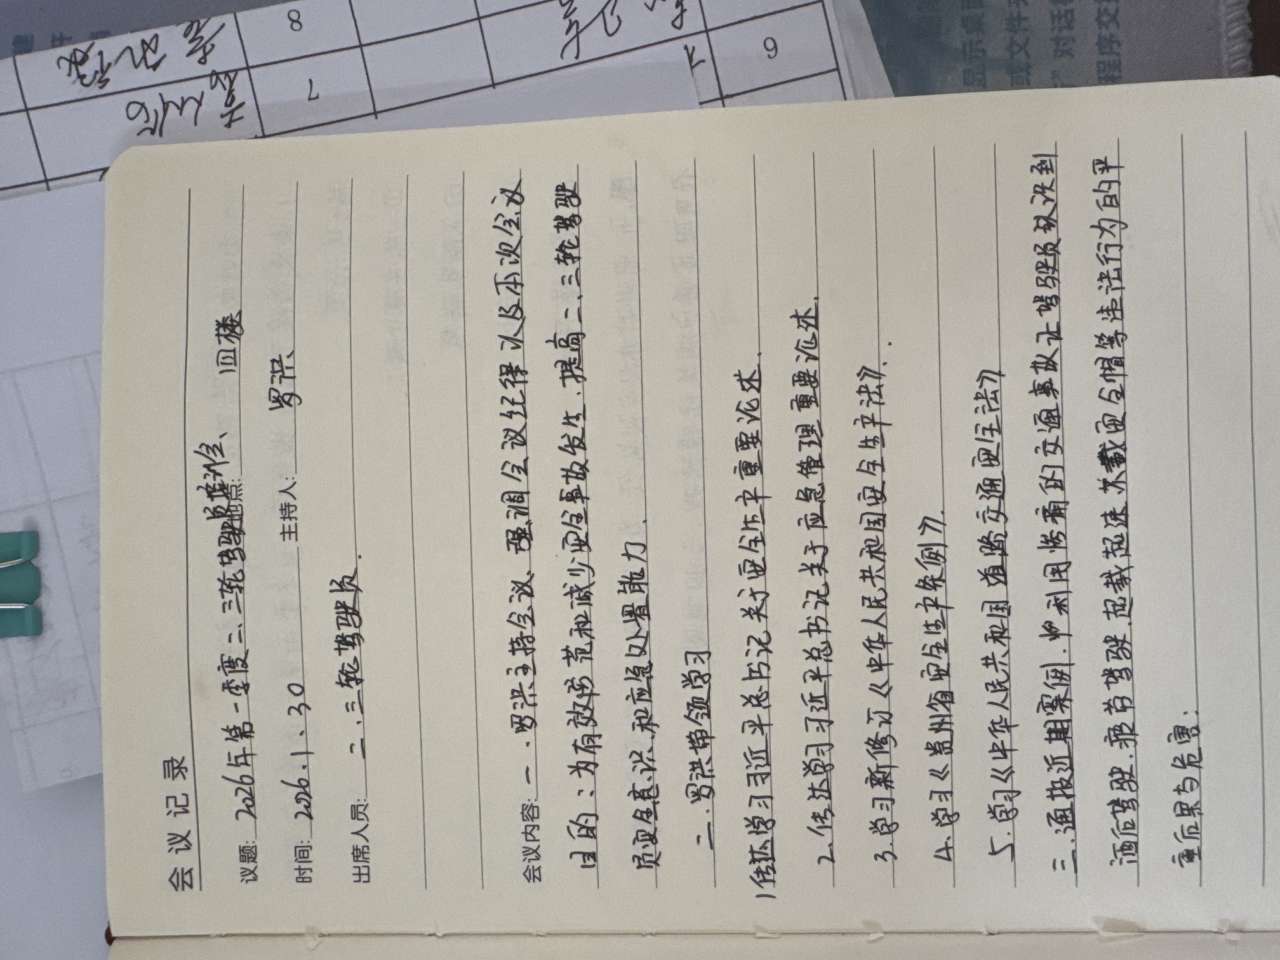 会议记录
议题: 2026年第一季度二、三轮驾驶员培训会、 地点: 四楼
时间: 2026.1.30 主持人: 罗洪
出席人员: 二、三轮驾驶员.
会议内容: 一.罗洪主持会议、强调会议纪律以及本次会议
目的:为有效防范和减少安全事故发生.提高二、三轮驾驶
员安全意识和应急处置能力.
二.罗洪带领学习
1传达学习习近平总书记关于安全生产重要论述.
2.传达学习习近平总书记关于应急管理重要论述.
3.学习新修订《中华人民共和国安全生产法》.
4.学习《贵州省安全生产条例》.
5.学习《中华人民共和国道路交通安全法》
三.通报近期案例.利用惨痛的交通事故让驾驶员认识到
酒后驾驶.疲劳驾驶.超载超速.不戴安全帽等违法行为的严
重后果与危害;
8
7
9
显示桌面
或文件夹
”对话
程序交